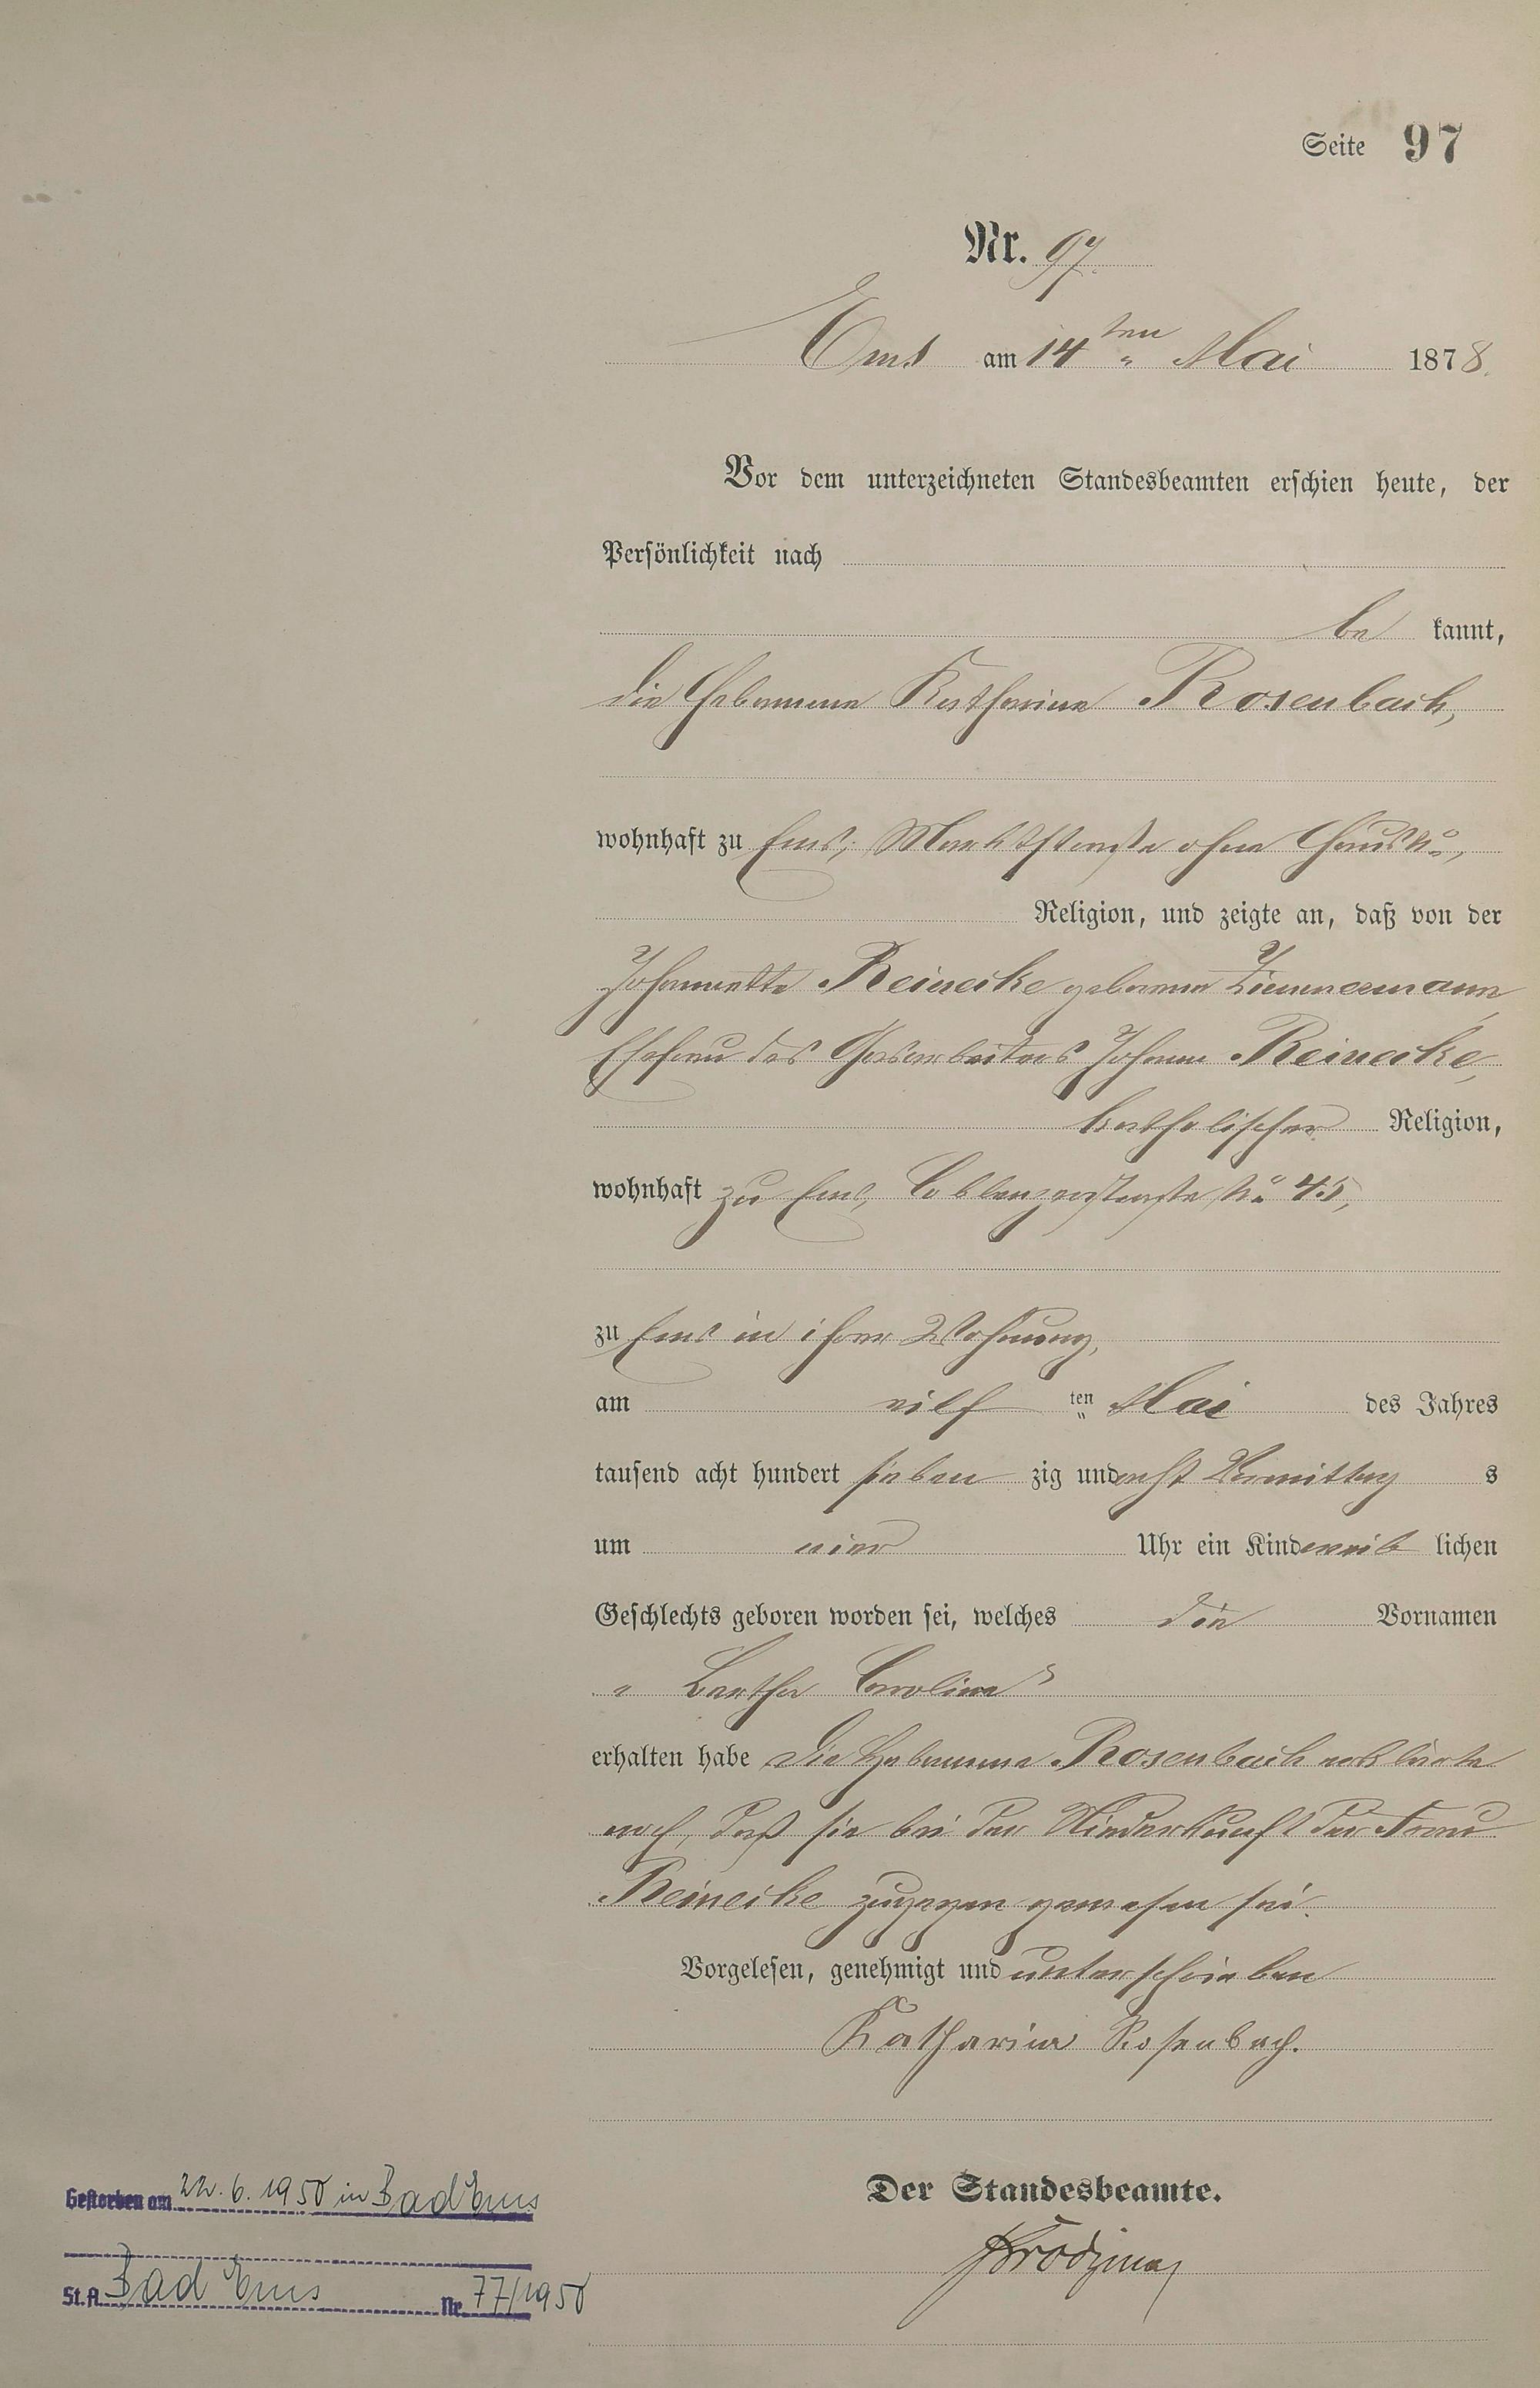 Seite 97
Nr. 97.
Ems am 14ten Mai 1878.
Vor dem unterzeichneten Standesbeamten erschien heute, der
Persönlichkeit nach
be kannt,
die Hebamme Katharina Rosenbach,
wohnhaft zu Ems, Marktstraße ohne Haus No,
Religion, und zeigte an, daß von der
Johannette Reinecke geborene Zimmermann,
Ehefrau des Gasarbeiters Johann Reinecke,
katholischer Religion,
wohnhaft zu Ems, Coblenzerstraße No 45,
zu Ems in ihrer Wohnung,
am eilf ten Mai des Jahres
tausend acht hundert sieben zig und acht Vormittag s
um vier Uhr ein Kind weib lichen
Geschlechts geboren worden sei, welches die Vornamen
„Bertha Carolina“
erhalten habe Die Hebamme Rosenbach erklärte
noch, daß sie bei der Niederkunft der Frau
Reinecke zugegen gewesen sei.
Vorgelesen, genehmigt und unterschrieben
Katharina Rosenbach.
Der Standesbeamte.
Gestorben am 22.6.1950 in Bad Ems
St.A. Bad Ems Nr. 77/1950